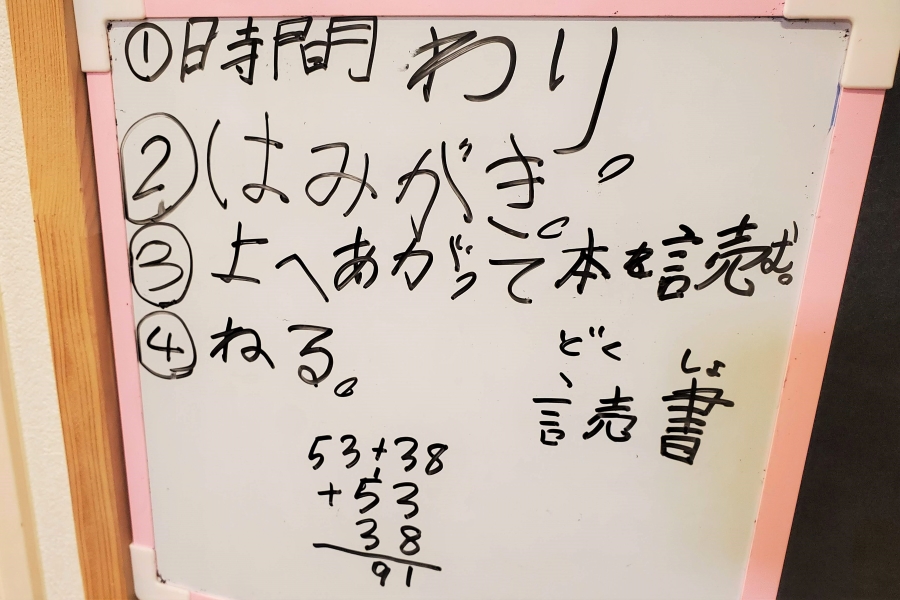 ①時間わり。
②はみがき。
③上へあがって本を読む。
④ねる。
どくしょ
読書
53+38
+53
38
91